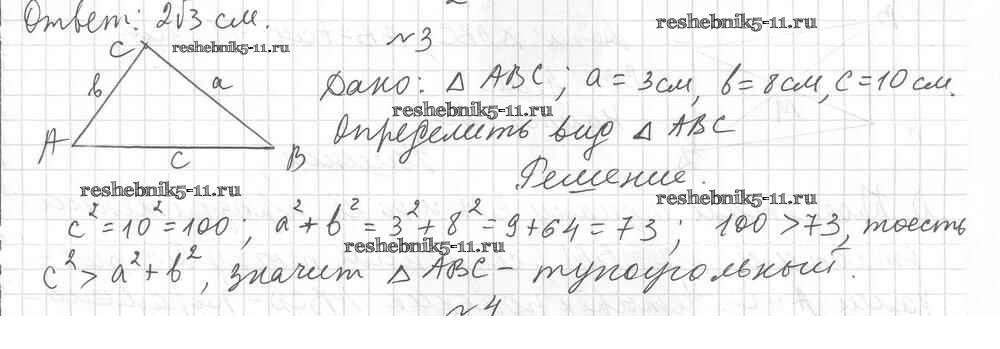 Ответ: 2√3 см.
reshebnik5-11.ru
reshebnik5-11.ru
№3
C
в
a
A
B
c
Дано: △ ABC; a = 3см, в = 8см, c = 10 см.
reshebnik5-11.ru
Определить вид △ ABC
Решение.
reshebnik5-11.ru
reshebnik5-11.ru
c² = 10² = 100; a² + b² = 3² + 8² = 9 + 64 = 73; 100 > 73, тоесть
reshebnik5-11.ru
c² > a² + b², значит △ ABC – тупоугольный.
№4